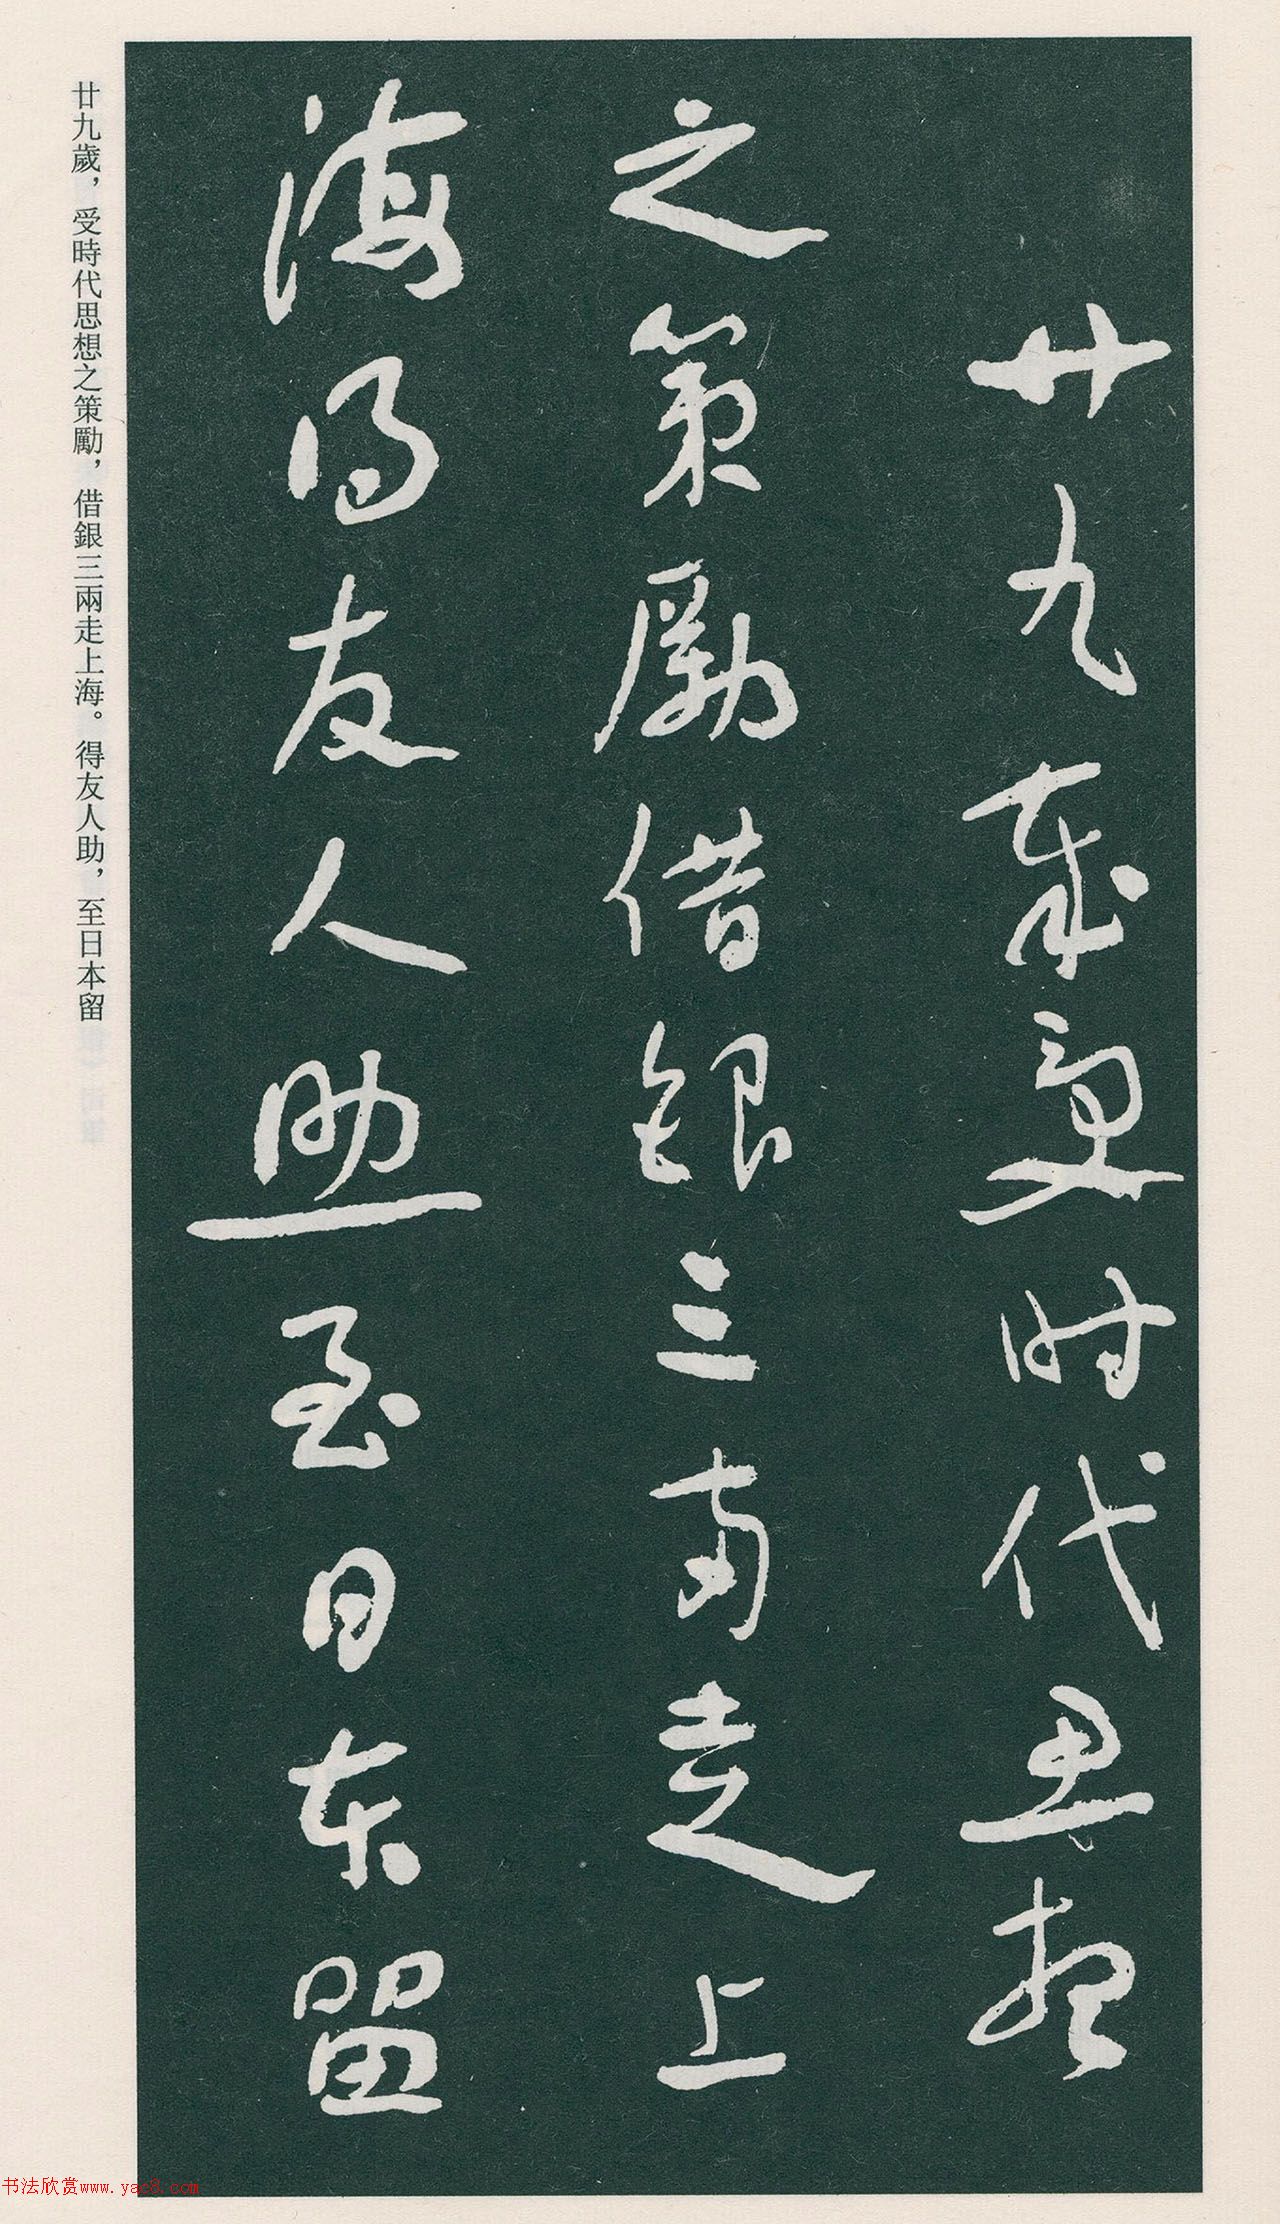 廿九歲受时代思想
之策勵借銀三兩走上
海得友人助至日本留
廿九歲，受時代思想之策勵，借銀三兩走上海。得友人助，至日本留
书法欣赏www.yac8.com